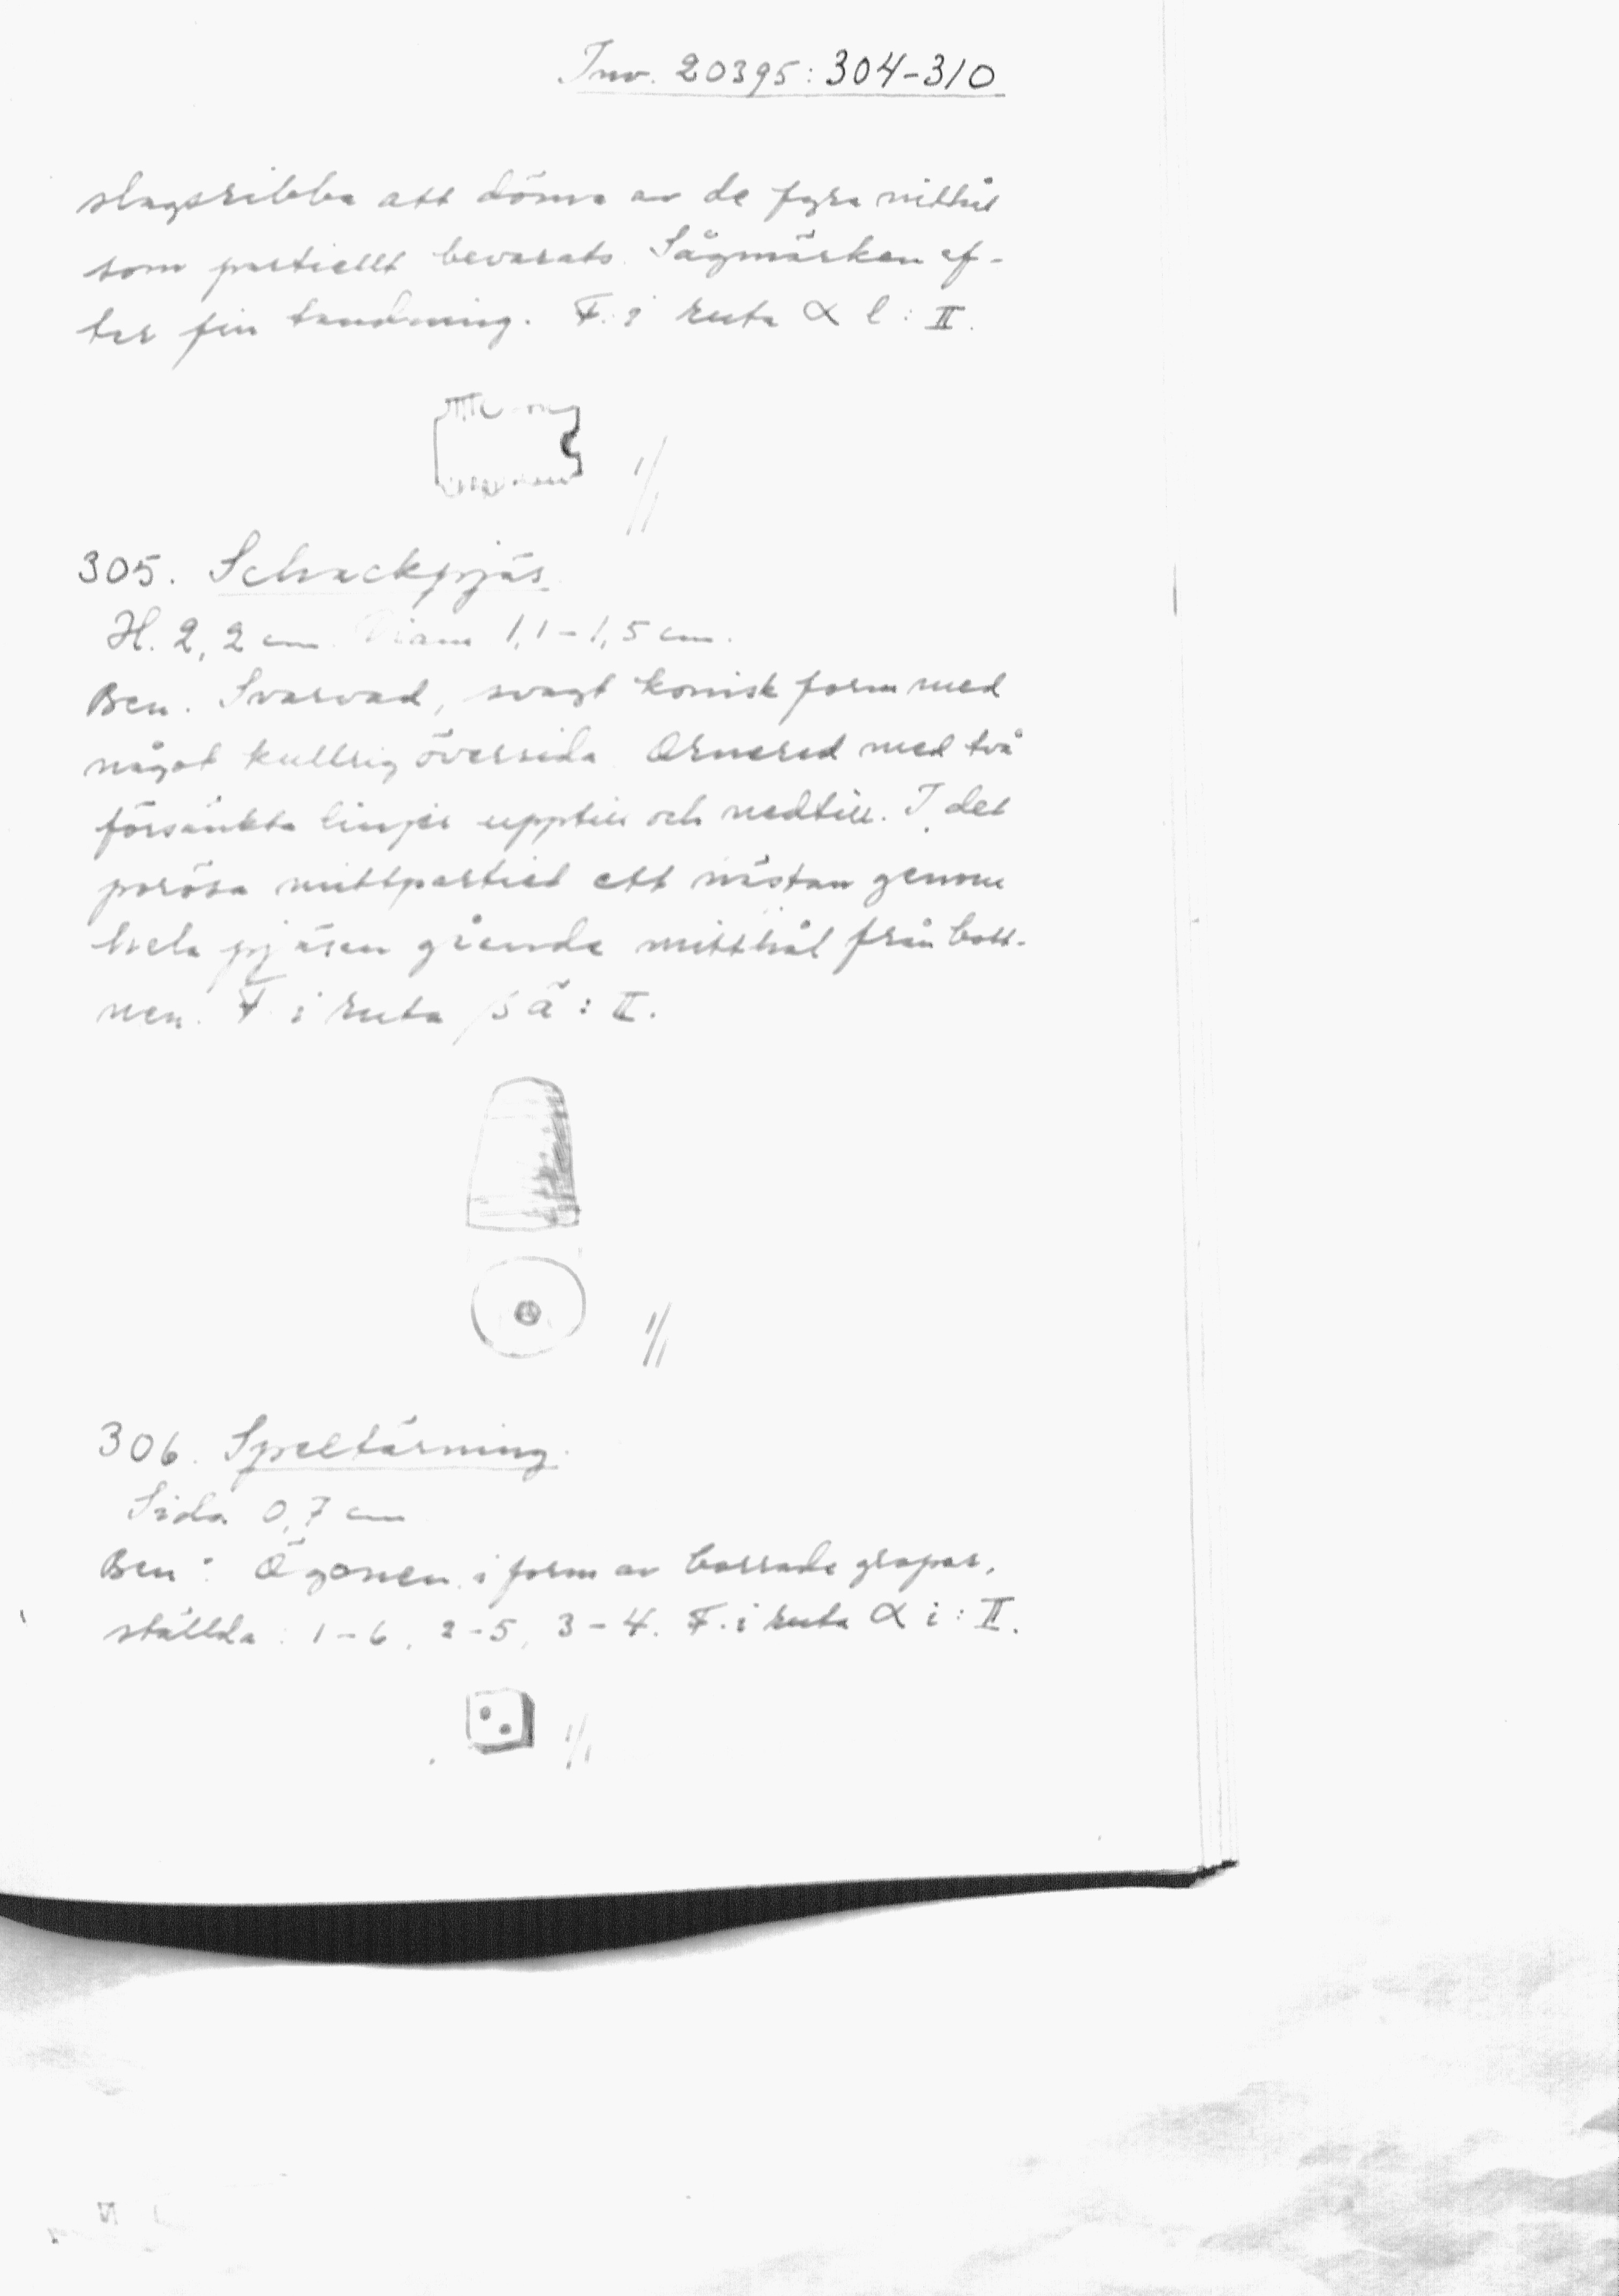 Inv. 20395:304-310
slagsribba att döma av de fyra nithål
som partiellt bevarats. Sågmärken ef-
ter fin tandning. F. i ruta α l : II.
1/1
305. Schackpjäs
H. 2,2 cm. Diam 1,1-1,5 cm.
Ben. Svarvad, svagt konisk form med
något kullrig översida. Ornered med två
försänkta linjer upptill och nedtill. I det
porösa mittpartiet ett nästan genom
hela pjäsen gående mitthål från bott-
nen. F. i ruta β ä : II.
1/1
306. Speltärning.
Sida 0,7 cm
Ben. Ögonen i form av borrade gropar,
ställda: 1-6, 2-5, 3-4. F. i ruta α i : II.
1/1